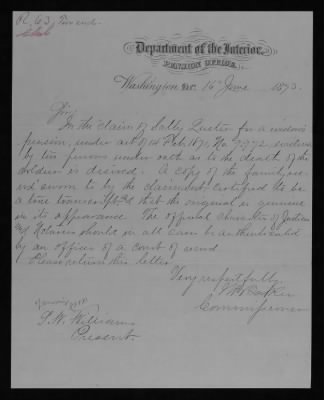 Department of the Interior,
PENSION OFFICE,
Washington, D.C. 16th June 1873.
Sir,
In the claim of Sally Luster for a widow's
pension, under act of 14 Feb 1871, No 7972 evidence
by two persons under oath as to the death of the
soldier is desired. A copy of the family rec
ord sworn to by the claimant, certified to be
a true transcript & that the original is genuine
in its appearance. The official character of Justices
and Notaries should in all cases be authenticated
by an officer of a court of record
Please return this letter
Very respectfully
Commissioner
S. W. Williams
Present